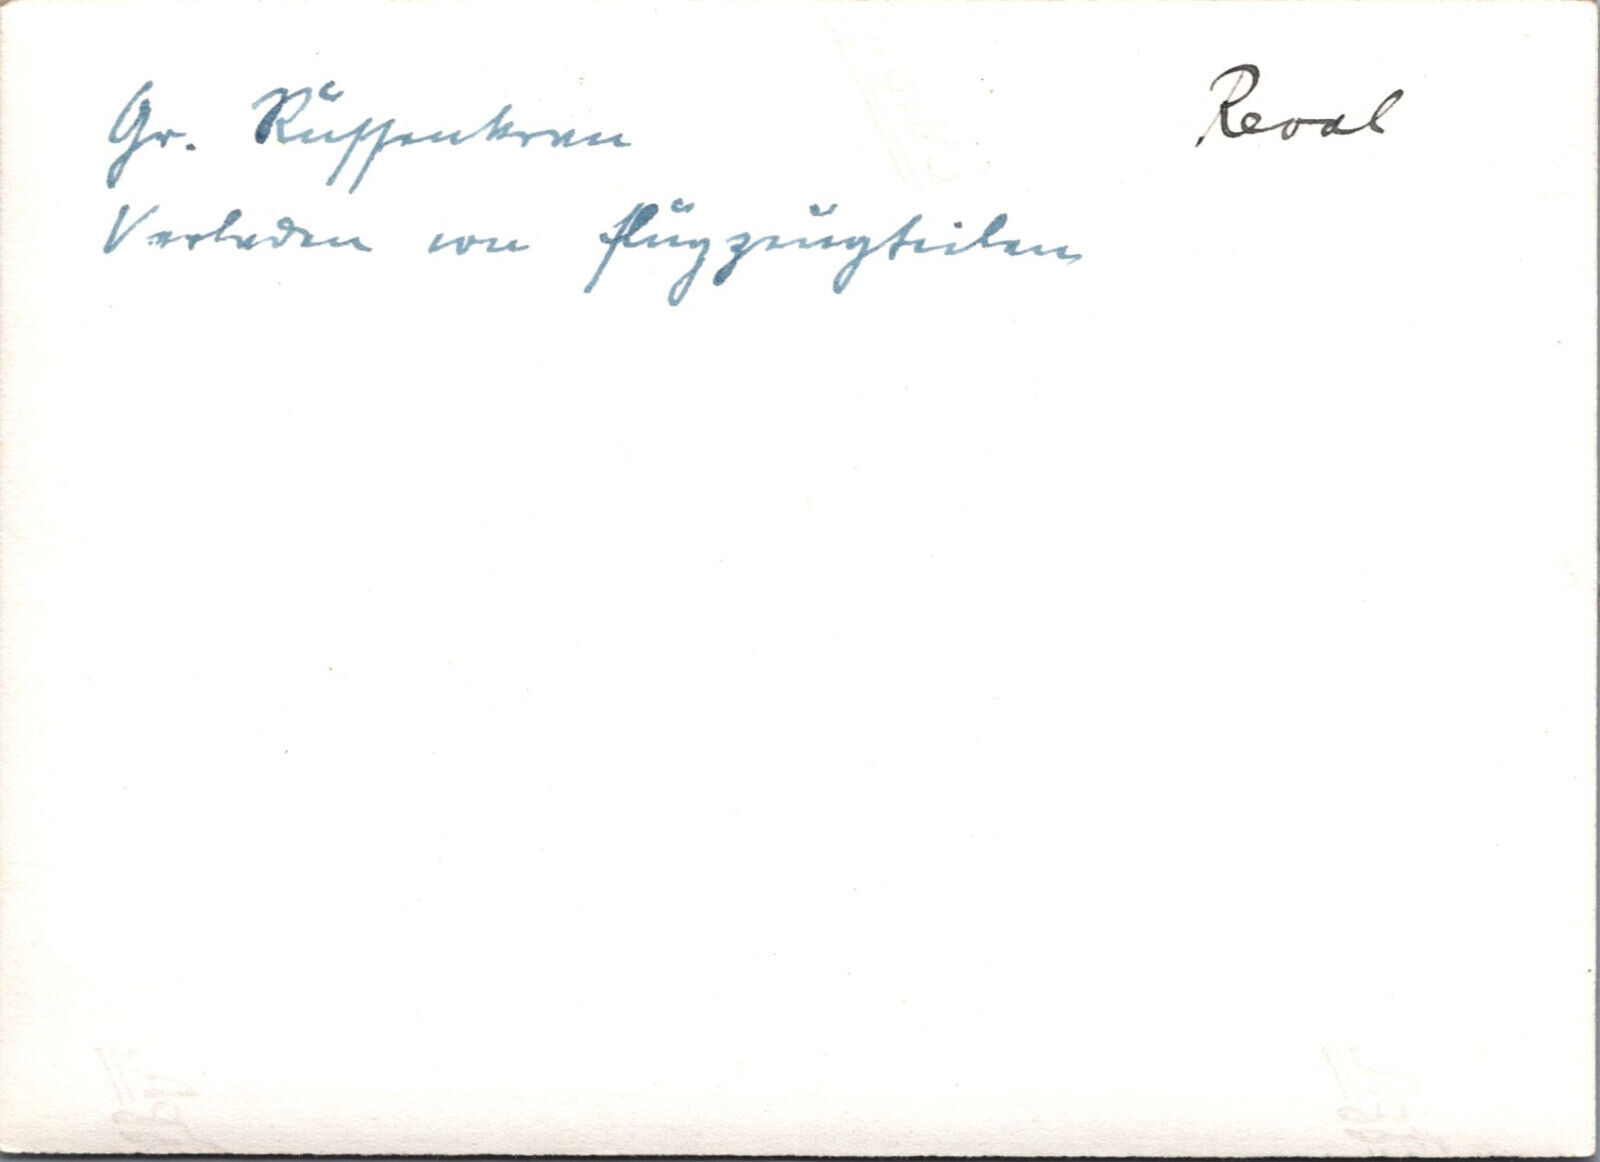 Gr. Russenkran
Reval
Verladen von Flugzeugteilen